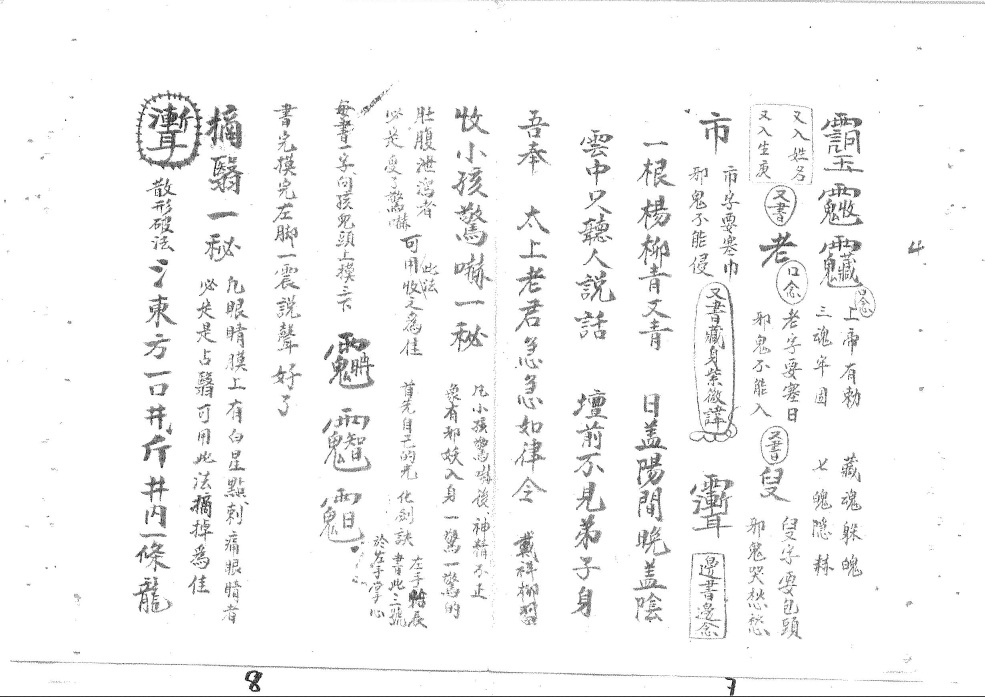 口念
上帝有勅 藏魂躲魄
三魂牢固 七魄隱
又入姓名
又入生庚
又書
老
口念
老字要塞日
邪鬼不能入
又書
叟
叟字要包頭
邪鬼哭愁愁
市
市字要塞巾
邪鬼不能侵
又書藏身紫微諱
邊書邊念
一根楊柳青又青 日盖陽間晚盖陰
雲中只聽人說話 壇前不見弟子身
吾奉 太上老君急急如律令
收小孩驚嚇一秘
凡小孩驚嚇後神精不正
象有邪妖入身一驚一驚的
肚腹泄瀉者
必是受了驚嚇
此法
可用收之為佳
首先自己的 化劍訣
左手 展
書此三號
於左手掌心
每書一字向孩兒頭上摸三下
書完摸完左脚一震說聲好了
摘翳一秘
凡眼睛膜上有白星點刺痛眼睛者
必是占翳可用此法摘掉為佳
散形破法
東方一口井 井内一條龍
4
8
7